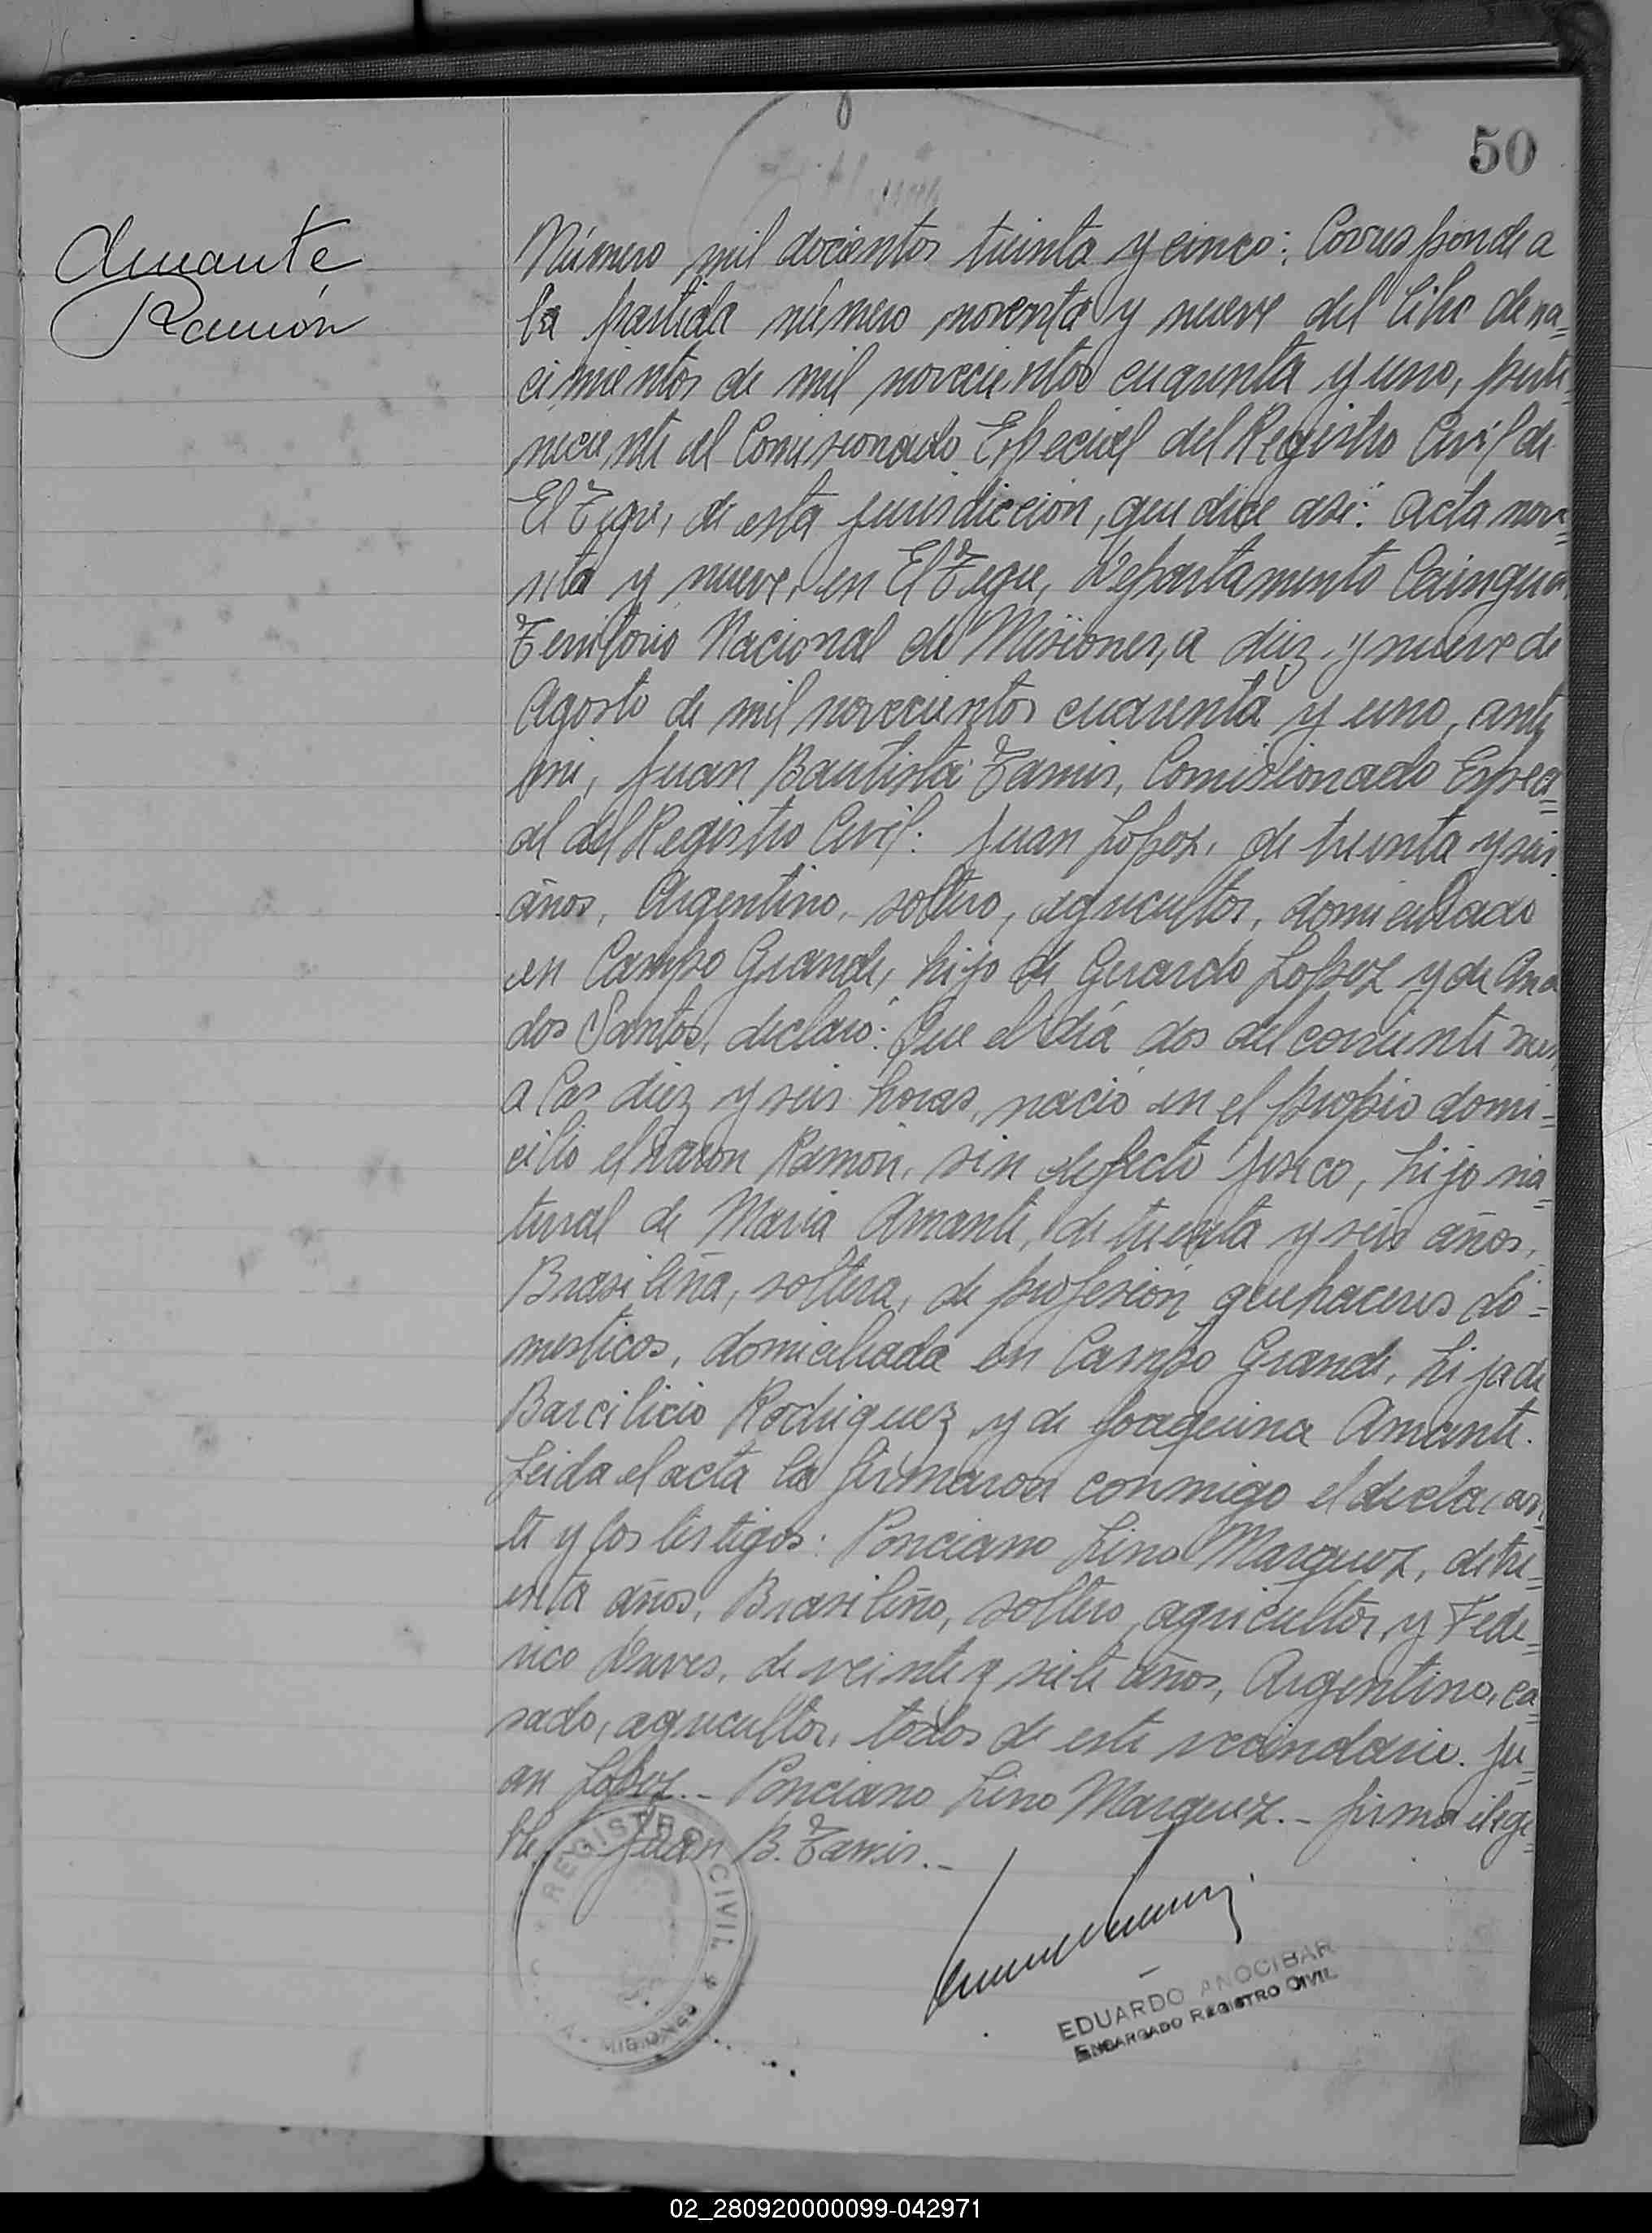 50
Amante
Ramón
Número mil docientos treinta y cinco: Corresponde a
la partida número noventa y nueve del Libro de na=
cimientos de mil novecientos cuarenta y uno, perte=
neciente al Comisionado Especial del Registro Civil de
El Tigre, de esta jurisdicción, que dice asi: Acta nove=
nta y nueve, en El Tigre, Departamento Cainguas
Territorio Nacional de Misiones, a diez y nueve de
Agosto de mil novecientos cuarenta y uno, ante
mi, Juan Bautista Comisionado Especi=
al del Registro Civil: Juan Lopez, de treinta y seis
años, Argentino, soltero, agricultor, domiciliado
en Campo Grande, hijo de Gerardo Lopez y de Ana
dos Santos, declaró: Que el día dos del corriente mes,
a las diez y seis horas, nació en el propio domi=
cilio el varon Ramón, sin defecto fisico, hijo na=
tural de Maria Amante, de treinta y seis años,
Brasileña, soltera, de profesión quehaceres do=
mesticos, domiciliada en Campo Grande, hija de
Barcilicio Rodriguez y de Joaquina Amante.
Leida el acta la firmaron conmigo el declaran=
te y los testigos: Ponciano Lino Marquez, de tre=
inta años, Brasileño, soltero, agricultor, y Fede=
rico de veinte y siete años, Argentino, ca=
sado, agricultor, todos de este vecindario. Ju=
an Lopez.- Ponciano Lino Marquez.- firma ilegi=
ble Juan B.
REGISTRO CIVIL * MISIONES
EDUARDO ANOCIBAR
ENCARGADO REGISTRO CIVIL
02_280920000099-042971